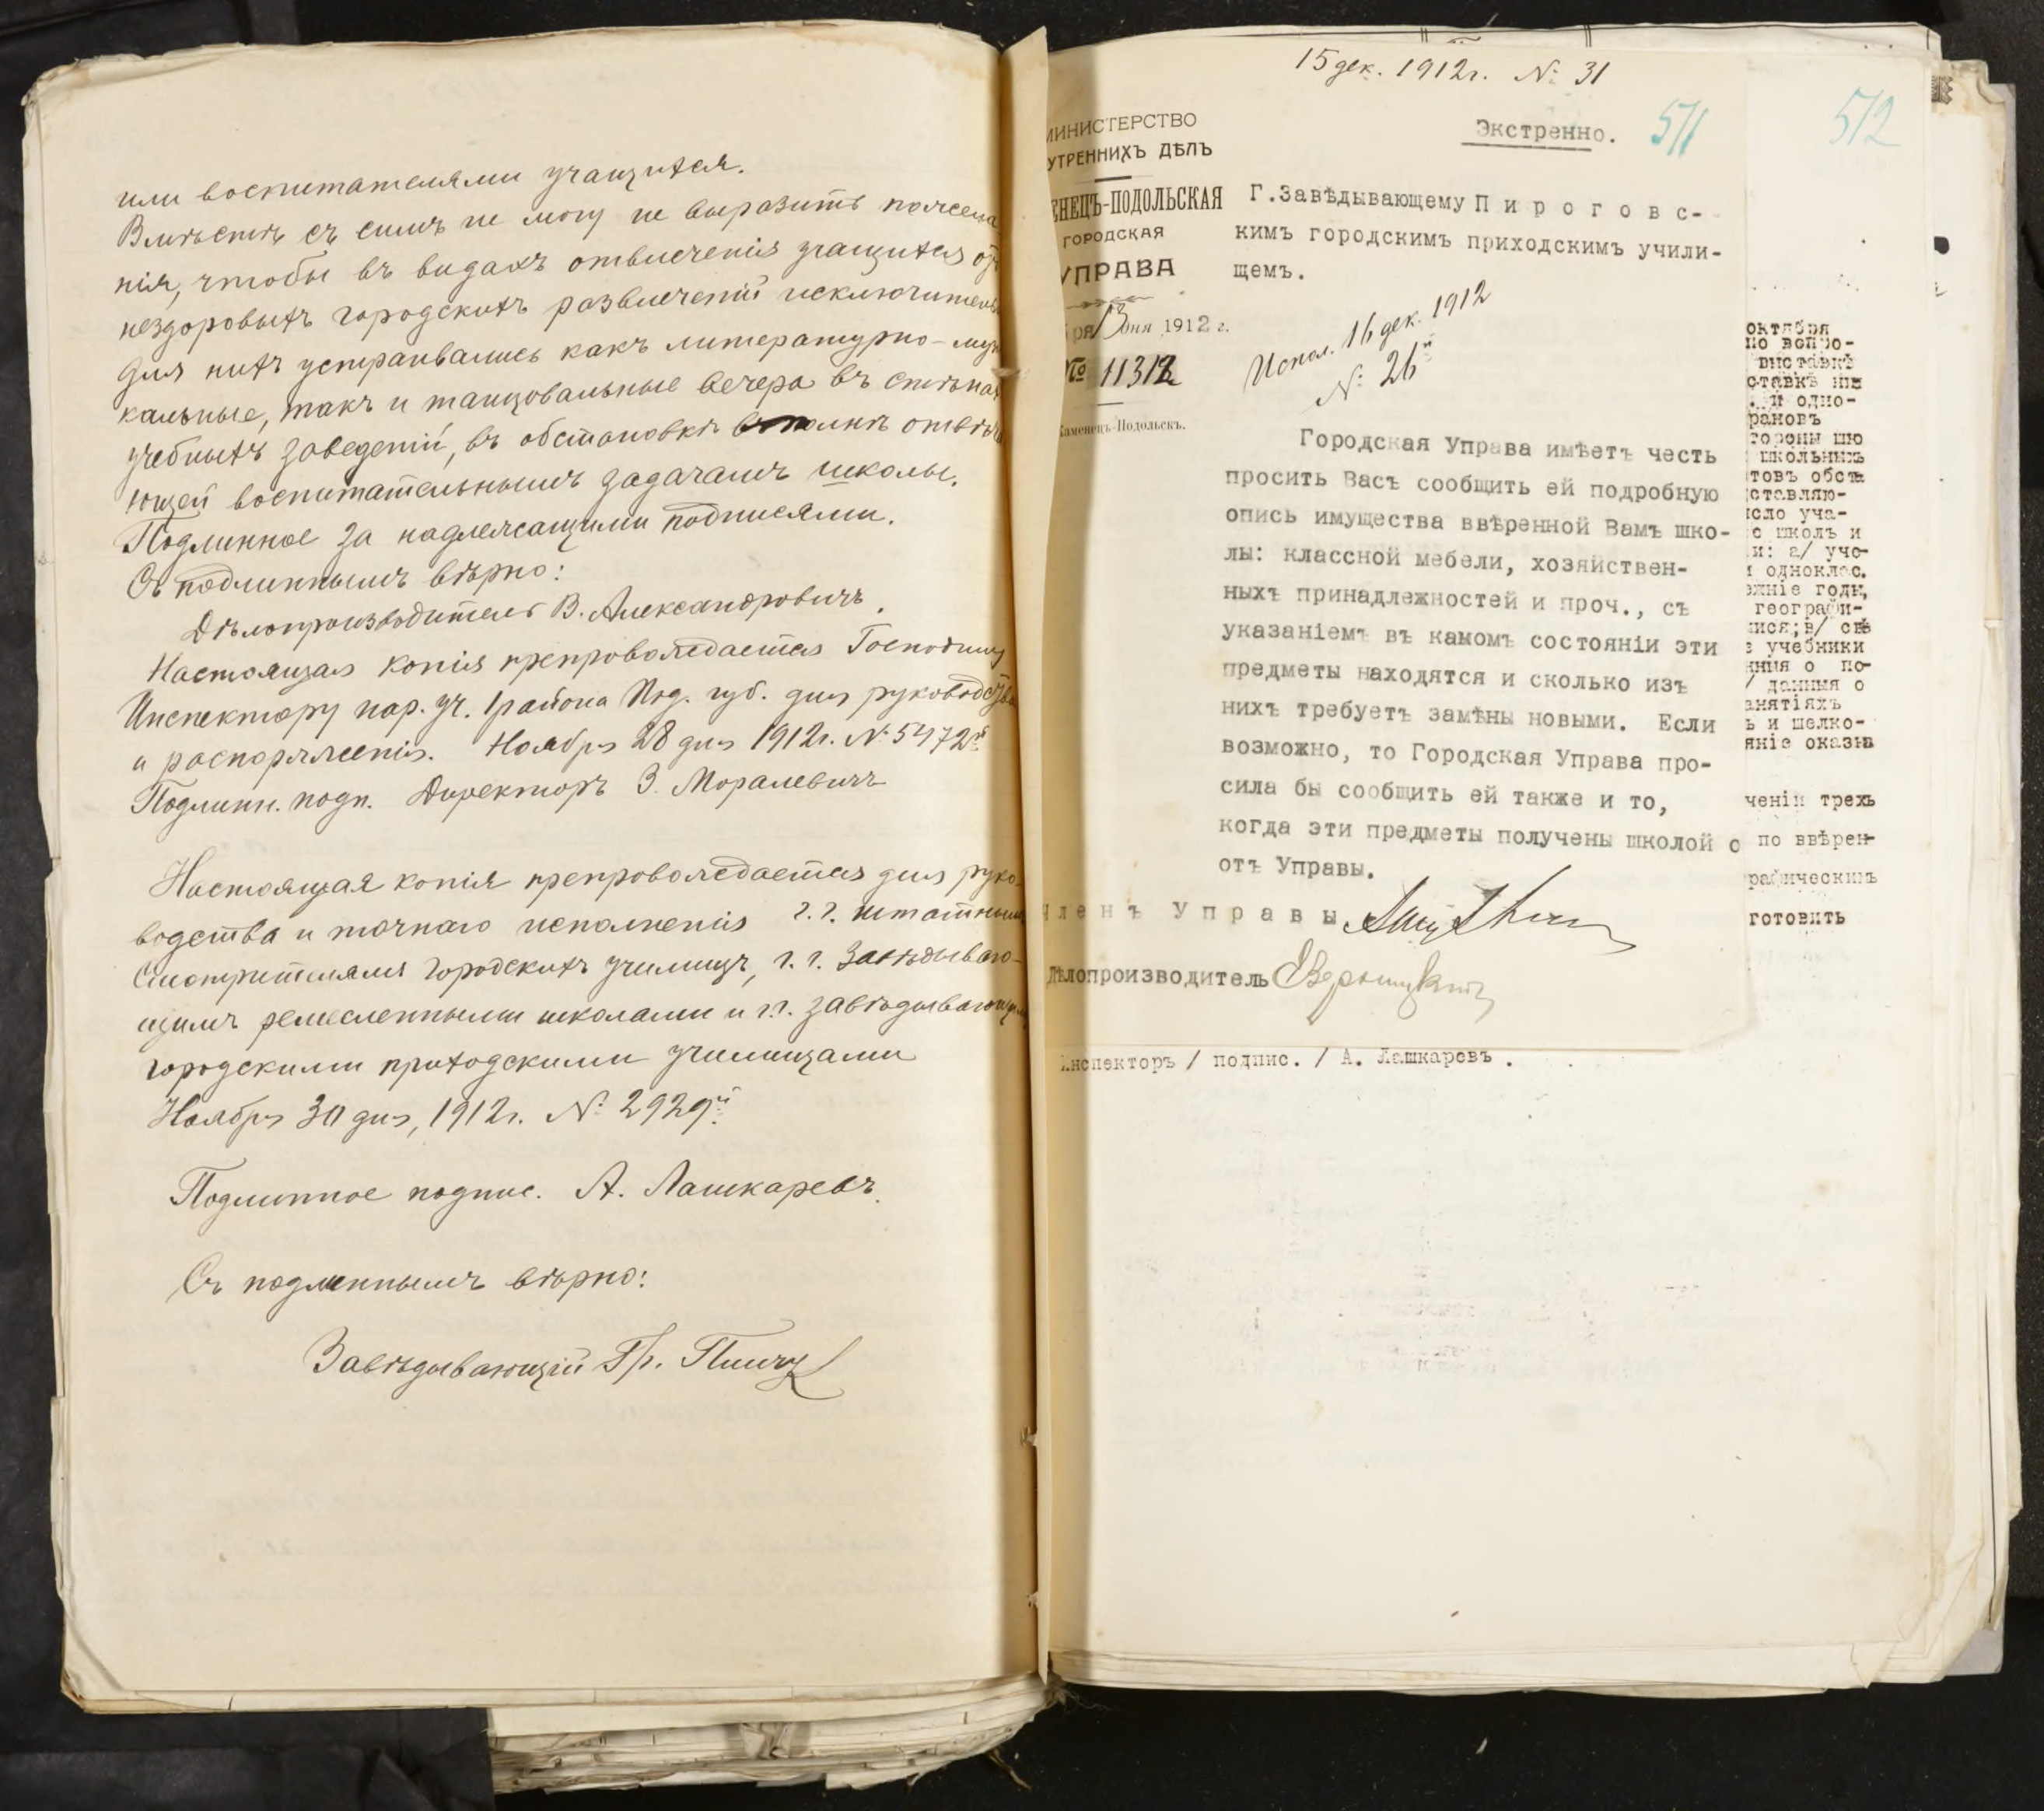 или воспитателями учащихся.
Вмѣстѣ съ симъ не могу не выразить пожела
нія, чтобы въ видахъ отвлеченія учащихся от
нездоровыхъ городскихъ развлеченій исключитель
для нихъ устраивались какъ литературно-музы
кальные, такъ и танцовальные вечера въ стѣнахъ
учебныхъ заведеній, въ обстановкѣ вполнѣ отвѣча
ющей воспитательнымъ задачамъ школы.
Подлинное за надлежащими подписями.
Съ подлиннымъ вѣрно:
Дѣлопроизводитель В. Александровичъ.
Настоящая копія препровождается Господину
Инспектору нар. уч. 1 района Под. губ. для руководства
и распоряженія. Ноября 28 дня 1912 г. № 5472й
Подлинн. подп. Директоръ З. Моралевичъ
Настоящая копія препровождается для руко-
водства и точнаго исполненія г.г. штатнымъ
Смотрителямъ городскихъ училищъ, г.г. Завѣдываю-
щимъ ремесленными школами и г.г. завѣдывающимъ
городскими приходскими училищами
Ноября 30 дня, 1912 г. № 2929й
Подлинное подпис. А. Лашкаревъ.
Съ подлиннымъ вѣрно:
Завѣдывающій Гр.
15 дек. 1912 г. № 31
Экстренно. 511
МИНИСТЕРСТВО
УТРЕННИХЪ ДѢЛЪ
ЕНЕЦЪ-ПОДОЛЬСКАЯ
ГОРОДСКАЯ
УПРАВА
ря 13 дня 1912 г.
№ 11312
Каменецъ-Подольскъ.
Г.Завѣдывающему Пироговс-
кимъ городскимъ приходскимъ учили-
щемъ.
Испол. 16 дек. 1912
№ 26й
Городская Управа имѣетъ честь
просить Васъ сообщить ей подробную
опись имущества ввѣренной Вамъ шко-
лы: классной мебели, хозяйствен-
ныхъ принадлежностей и проч., съ
указаніемъ въ камомъ состояніи эти
предметы находятся и сколько изъ
нихъ требуетъ замѣны новыми. Если
возможно, то Городская Управа про-
сила бы сообщить ей также и то,
когда эти предметы получены школой
отъ Управы.
Членъ Управы
Дѣлопроизводитель
Инспекторъ / подпис. / А. Лашкаревъ .
512
октября
по вопро-
виставкѣ
ставкѣ
. и одно-
рановъ
тороны
школьныхъ
товъ обста
ставляю-
исло уча-
о школъ и
и: а/ уче-
и одноклас.
ежніе годы,
географи-
иися; в/ свѣ
учебники
о по-
/ данныя о
анятіяхъ
ь и шелко-
яніе оказыв
ченіи трехъ
о по ввѣрен-
рафическимъ
готовить